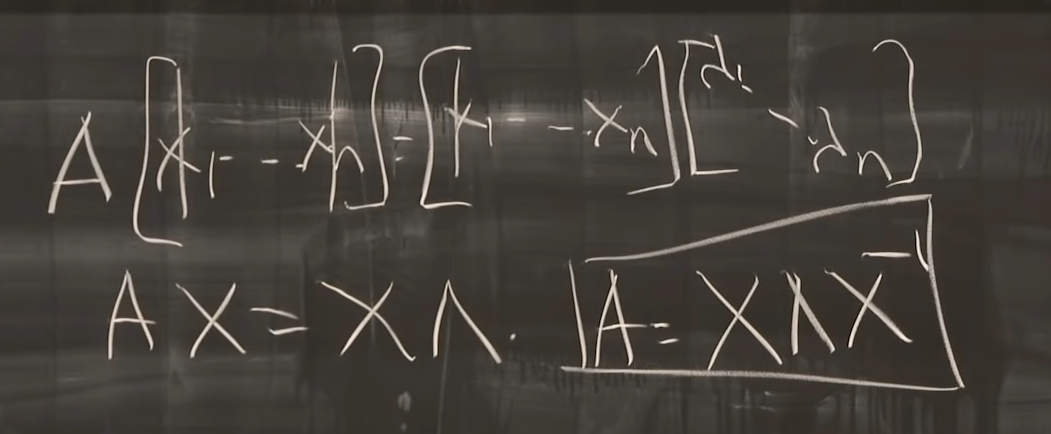 A [x₁ - - - xₙ] = [x₁ - - - xₙ] [λ₁ ⋱ λₙ]
A X = X Λ. A = X Λ X⁻¹